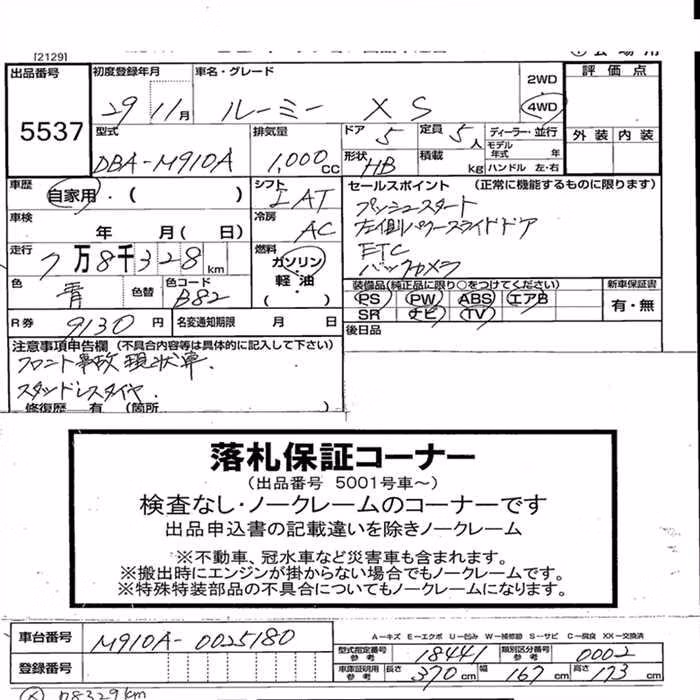 [2129]
会場用
出品番号
5537
初度登録年月
29 11月
車名・グレード
ルーミー XS
2WD
4WD
評価点
外装 内装
型式
DBA-M910A
排気量
1,000 CC
ドア 5
定員 5人
形状 HB
積載 kg
ディーラー・並行
モデル年式 年
ハンドル 左・右
車歴
自家用・( )
シフト
IAT
セールスポイント (正常に機能するものに限ります)
プッシュスタート
左側パワースライドドア
ETC
バックカメラ
車検
年 月( 日)
冷房
AC
走行
7万8千328km
燃料
ガソリン
軽油
( )
色
青
色替
色コード
B82
装備品(純正品に限り○をつけてください)
PS PW ABS エアB
SR ナビ TV
新車保証書
有・無
R券
9130円
名変通知期限 月 日
後日品
注意事項申告欄 (不具合内容等は具体的に記入して下さい)
フロント事故現状車.
スタッドレスタイヤ.
修復歴 有 (箇所 )
落札保証コーナー
(出品番号 5001号車~)
検査なし・ノークレームのコーナーです
出品申込書の記載違いを除きノークレーム
※不動車、冠水車など災害車も含まれます。
※搬出時にエンジンが掛からない場合でもノークレームです。
※特殊特装部品の不具合についてもノークレームになります。
車台番号
M910A-0025180
A-キズ E-エクボ U-凹み W-補修跡 S-サビ C-腐食 XX-交換済
型式指定番号参考 18441
類別区分番号参考 0002
登録番号
車庫証明用参考 長さ 370cm 幅 167cm 高さ 173cm
78329km